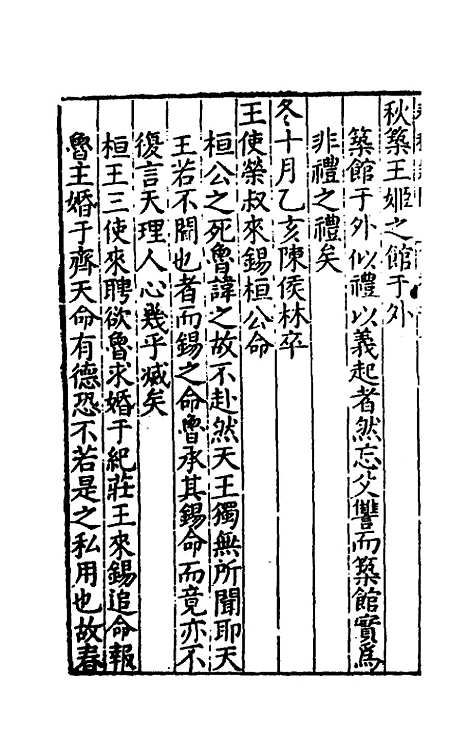 秋築王姬之館于外
築館于外似禮以義起者然忘父讐而築館實爲
非禮之禮矣
冬十月乙亥陳侯林卒
王使榮叔來錫桓公命
桓公之死魯諱之故不赴然天王獨無所聞耶天
王若不聞也者而錫之命魯承其錫命而竟亦不
復言天理人心幾乎滅矣
桓王三使來聘欲魯求婚于紀莊王來錫追命報
魯主婚于齊天命有德恐不若是之私用也故春